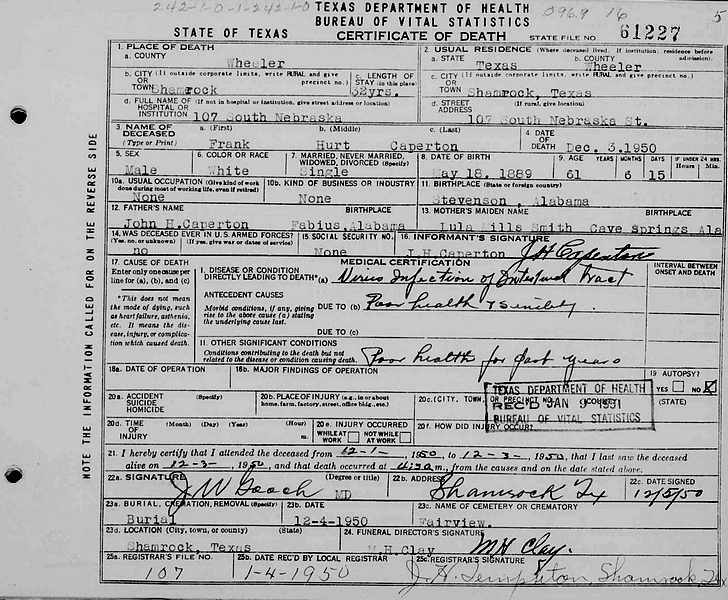 242-1-0-1-242-1-0 TEXAS DEPARTMENT OF HEALTH 096.9 16 5
BUREAU OF VITAL STATISTICS
STATE OF TEXAS CERTIFICATE OF DEATH STATE FILE NO. 61227
1. PLACE OF DEATH
a. COUNTY
Wheeler
2. USUAL RESIDENCE (Where deceased lived. If institution: residence before admission).
a. STATE b. COUNTY
Texas Wheeler
b. CITY (If outside corporate limits, write RURAL and give precinct no.)
OR
TOWN Shamrock
c. LENGTH OF STAY (in this place)
32yrs.
c. CITY (If outside corporate limits, write RURAL and give precinct no.)
OR
TOWN Shamrock, Texas
d. FULL NAME OF (If not in hospital or institution, give street address or location)
HOSPITAL OR
INSTITUTION 107 South Nebraska
d. STREET (If rural, give location)
ADDRESS
107 South Nebraska St.
3. NAME OF DECEASED a. (First) b. (Middle) c. (Last)
(Type or Print) Frank Hurt Caperton
4. DATE OF DEATH Dec. 3,1950
5. SEX
Male
6. COLOR OR RACE
White
7. MARRIED, NEVER MARRIED, WIDOWED, DIVORCED (Specify)
Single
8. DATE OF BIRTH
May 18, 1889
9. AGE YEARS MONTHS DAYS IF UNDER 24 HRS
Hours Min.
61 6 15
10a. USUAL OCCUPATION (Give kind of work done during most of working life, even if retired)
None
10b. KIND OF BUSINESS OR INDUSTRY
None
11. BIRTHPLACE (State or foreign country)
Stevenson, Alabama
12. FATHER'S NAME BIRTHPLACE
John H.Caperton Fabius,Alabama
13. MOTHER'S MAIDEN NAME BIRTHPLACE
Lula Mills Smith Cave Springs Ala
14. WAS DECEASED EVER IN U.S. ARMED FORCES?
(Yes, no, or unknown) (If yes, give war or dates of service)
no
15 SOCIAL SECURITY NO.
None
16. INFORMANT'S SIGNATURE
J.H.Caperton J H Caperton
17. CAUSE OF DEATH
Enter only one cause per line for (a), (b), and (c)
*This does not mean the mode of dying, such as heart failure, asthenia, etc. It means the disease, injury, or complication which caused death.
MEDICAL CERTIFICATION
INTERVAL BETWEEN ONSET AND DEATH
I. DISEASE OR CONDITION
DIRECTLY LEADING TO DEATH*(a) Virus Infection of Intestinal Tract
ANTECEDENT CAUSES
Morbid conditions, if any, giving rise to the above cause (a) stating the underlying cause last.
DUE TO (b) Poor health & Senility
DUE TO (c)
11. OTHER SIGNIFICANT CONDITIONS
Conditions contributing to the death but not related to the disease or condition causing death.
Poor health for past years
18a. DATE OF OPERATION
18b. MAJOR FINDINGS OF OPERATION
19 AUTOPSY?
YES NO X
20a. ACCIDENT (Specify)
SUICIDE
HOMICIDE
20b. PLACE OF INJURY (e.g., in or about home, farm, factory, street, office bldg., etc.)
20c. (CITY, TOWN, OR PRECINCT NO.) (COUNTY) (STATE)
TEXAS DEPARTMENT OF HEALTH
REC'D JAN 9 1951
BUREAU OF VITAL STATISTICS
20d. TIME OF INJURY (Month) (Day) (Year) (Hour)
m.
20e. INJURY OCCURRED
WHILE AT WORK NOT WHILE AT WORK
20f. HOW DID INJURY OCCUR?
21. I hereby certify that I attended the deceased from 12-1-, 1950, to 12-3-, 1950, that I last saw the deceased
alive on 12-3-, 1950, and that death occurred at m., from the causes and on the date stated above.
22a. SIGNATURE (Degree or title)
J W Gooch MD
22b. ADDRESS
Shamrock Tx
22c. DATE SIGNED
12/5/50
23a. BURIAL, CREMATION, REMOVAL (Specify)
Burial
23b. DATE
12-4-1950
23c. NAME OF CEMETERY OR CREMATORY
Fairview.
23d. LOCATION (City, town, or county) (State)
Shamrock, Texas
24. FUNERAL DIRECTOR'S SIGNATURE
M.H.Clay MH Clay.
25a. REGISTRAR'S FILE NO.
107
25b. DATE REC'D BY LOCAL REGISTRAR
1-4-1950
25c. REGISTRAR'S SIGNATURE
J. H. Templeton, Shamrock, Tex
NOTE THE INFORMATION CALLED FOR ON THE REVERSE SIDE